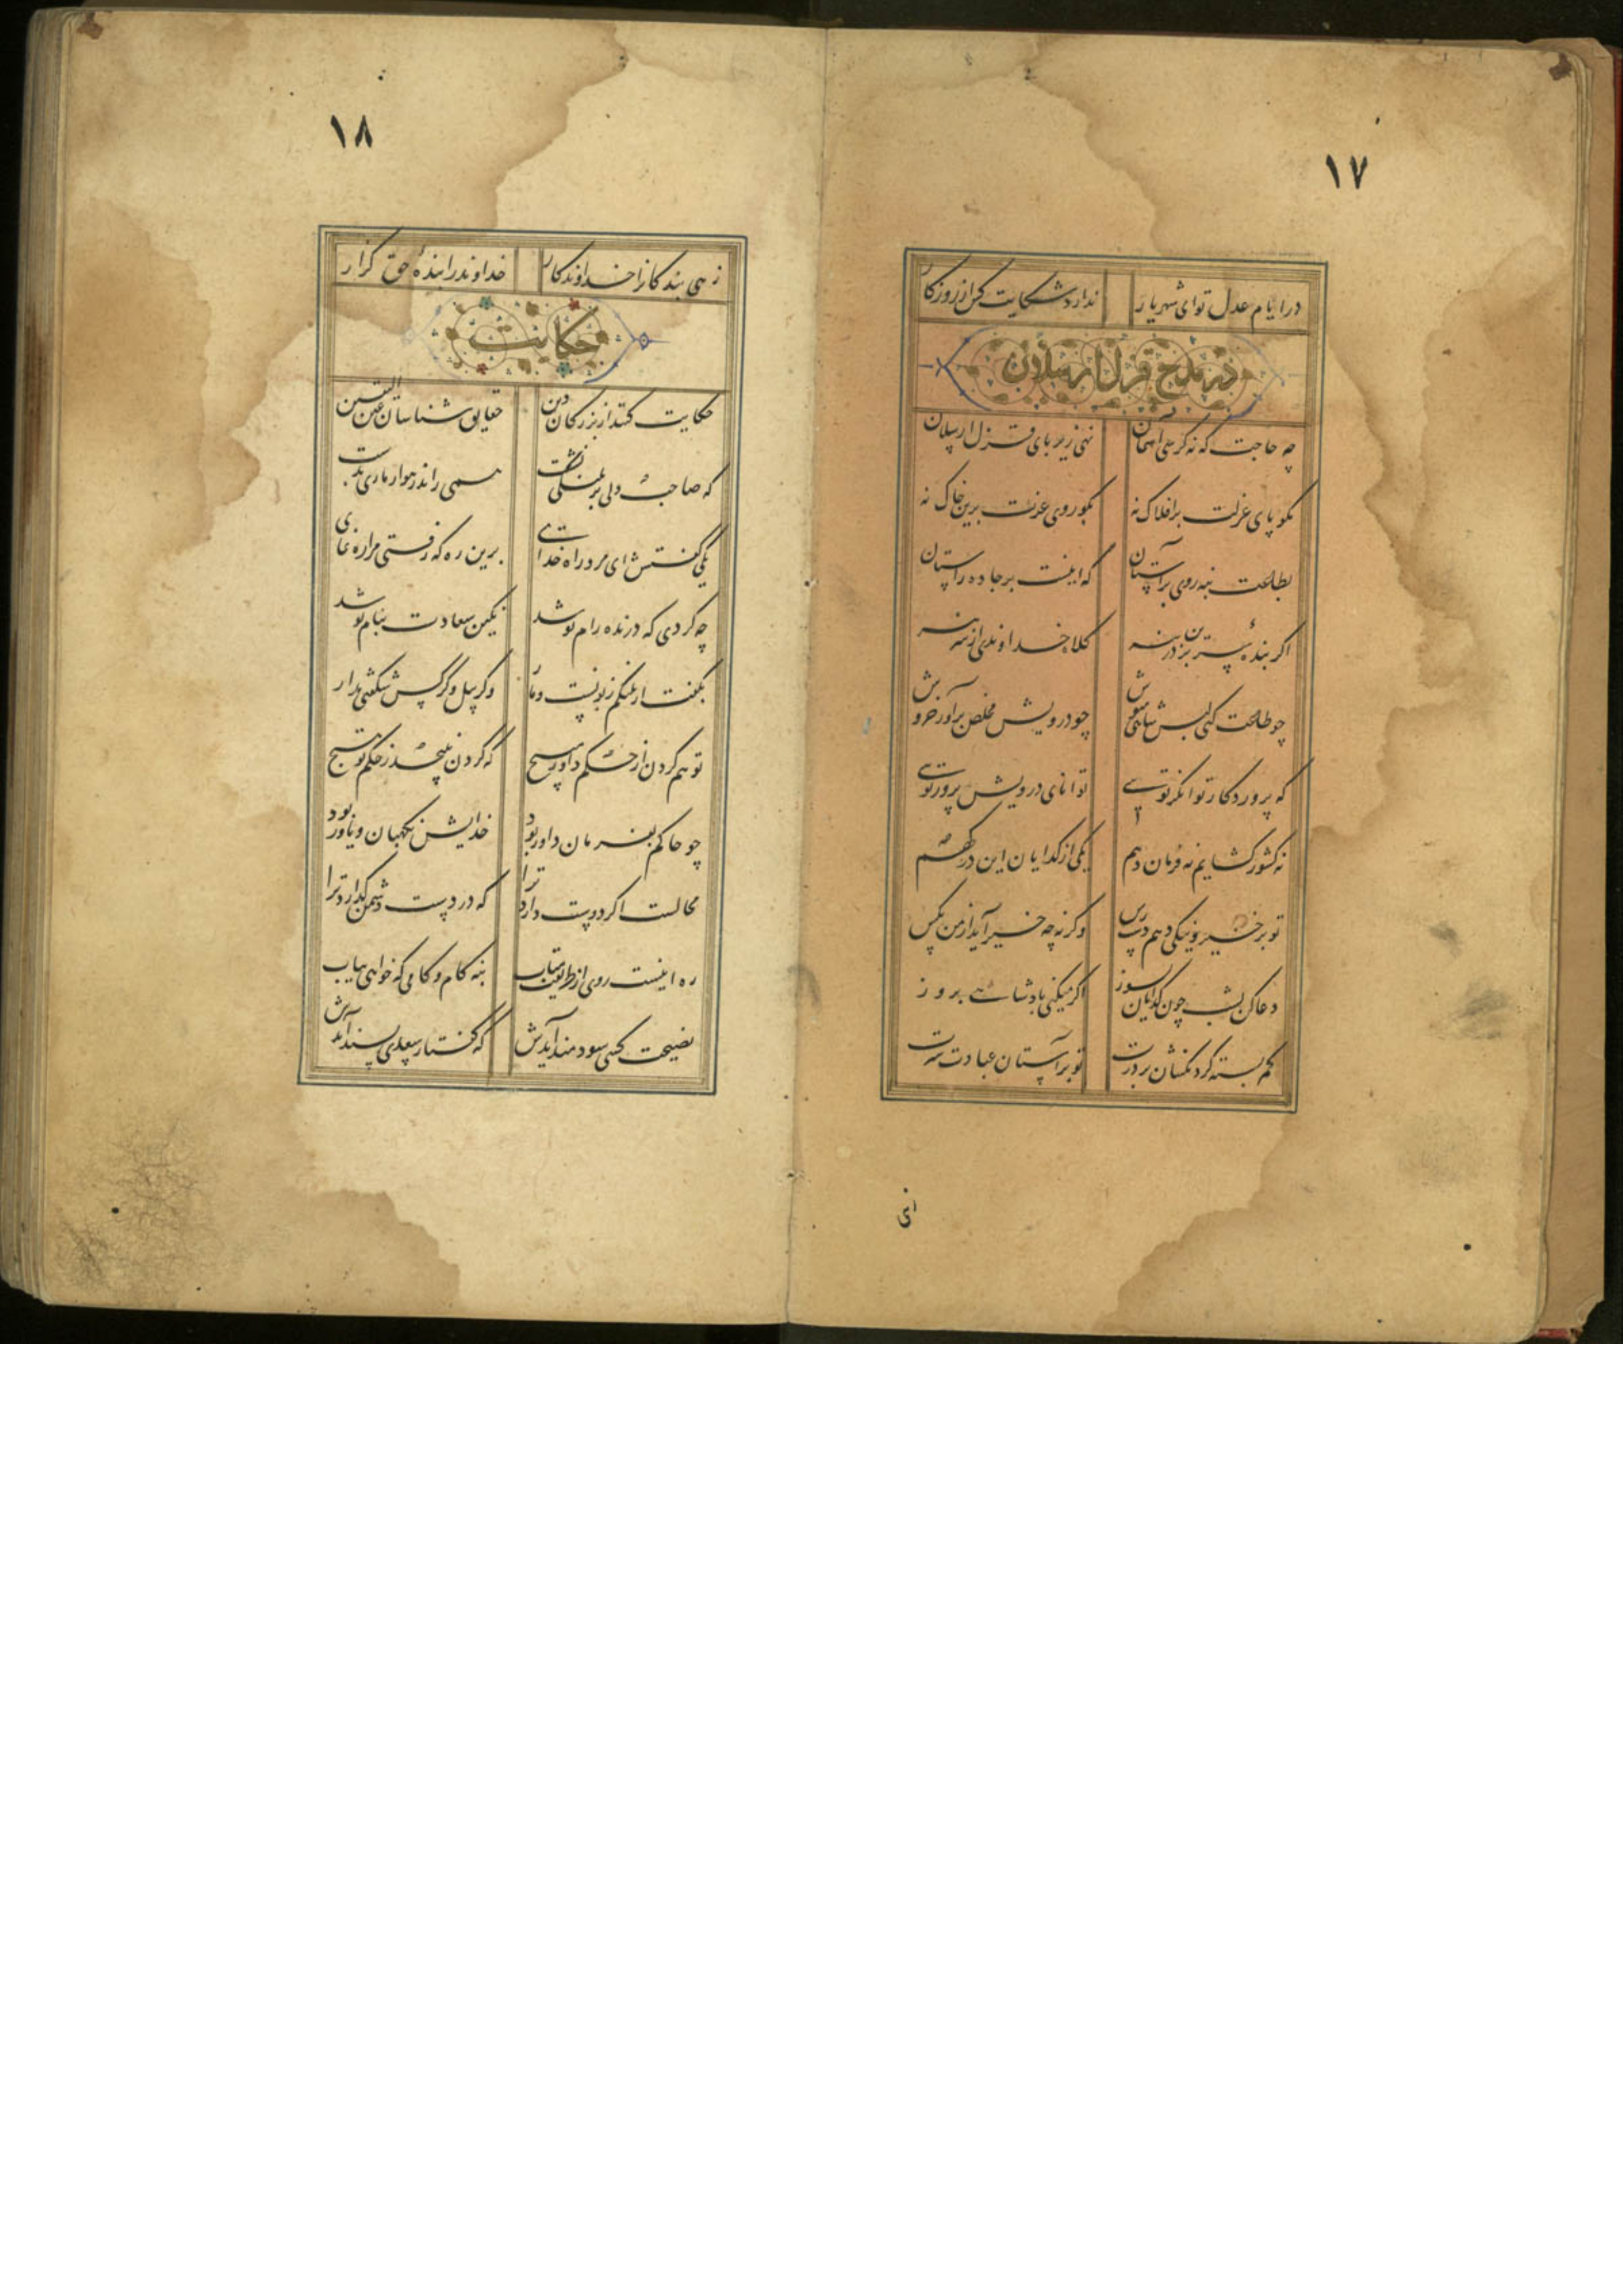 ۱۷
در ایام عدل تو ای شهریار ندارد شکایت کس از روزگار
در مدح قزل ارسلان
چه حاجت که نه کرسی آسمان نهی زیر پای قزل ارسلان
مگو پای عزت بر افلاک نه بگو روی عزت برین خاک نه
بطاعت بنه روی بر آستان که اینست بر جاده راستان
اگر بنده سر برین در بنه کلاه خداوندی از سر بنه
چو طاعت کنی لبس شاهی مپوش چو درویش مخلص برآور خروش
که پروردگار توانگر تویی توانای درویش پرور تویی
نه کشور گشایم نه فرمان دهم یکی از گدایان این درگهم
تو بر خیر و نیکی دهم دست رس وگرنه چه خیر آید از من بکس
دعا کن بشب چون گدایان بسوز اگر میکنی پادشاهی بروز
کمر بسته گردنکشان بر درت تو بر آستان عبادت سرت
زهی
۱۸
زهی بندگانرا خداوندگار خداوند را بنده حق گزار
حکایت
حکایت کنند از بزرگان دین حقایق شناسان عین الیقین
که صاحب دلی بر پلنگی نشست همی راند رهوار ماری بدست
یکی گفتش ای مرد راه خدای برین ره که رفتی مرا ره نمای
چه کردی که درنده رام تو شد نگین سعادت بنام تو شد
بگفت ار پلنگم زبونست و مار وگر پیل و کرگس شگفتی مدار
تو هم گردن از حکم داور مپیچ که گردن نپیچد ز حکم تو هیچ
چو حاکم بفرمان داور بود خدایش نگهبان و یاور بود
محالست اگر دوست دارد ترا که در دست دشمن گذارد ترا
ره اینست روی از طریقت متاب بنه گام و کامی که خواهی بیاب
نصیحت کسی سودمند آیدش که گفتار سعدی پسند آیدش